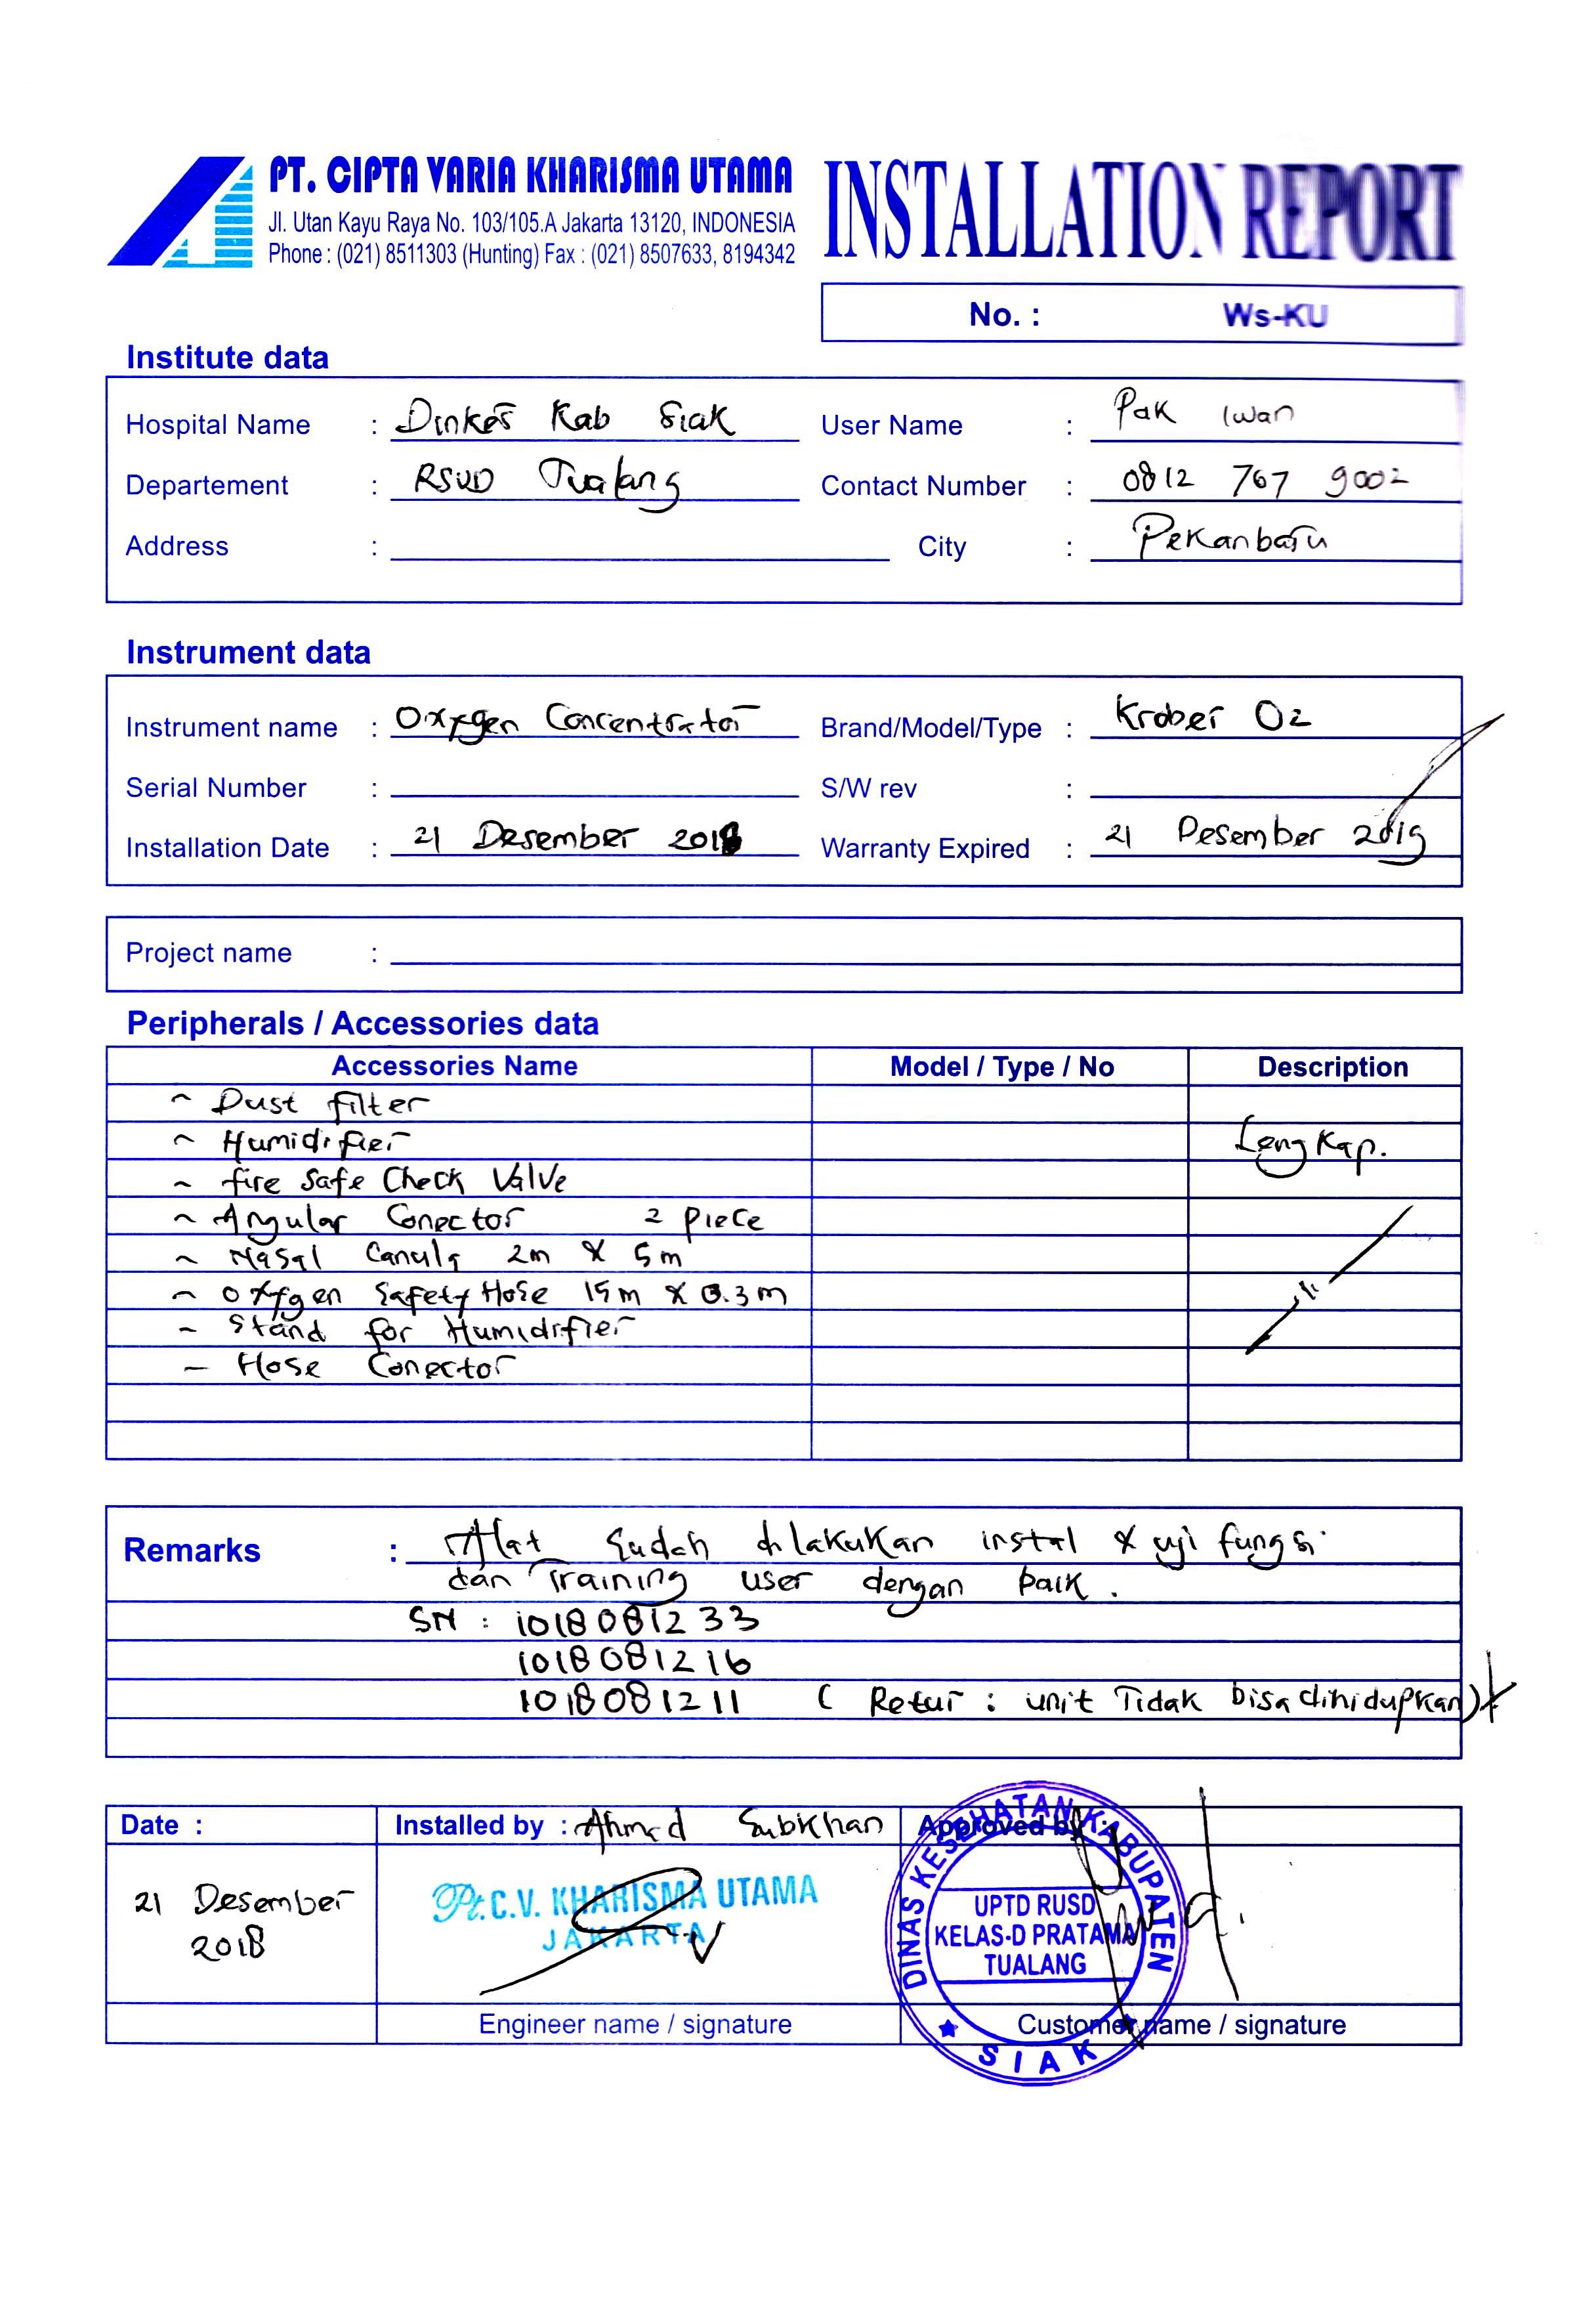 PT. CIPTA VARIA KHARISMA UTAMA
Jl. Utan Kayu Raya No. 103/105.A Jakarta 13120, INDONESIA
Phone : (021) 8511303 (Hunting) Fax : (021) 8507633, 8194342
INSTALLATION REPORT
No. : Ws-KU
Institute data
Hospital Name : Dinkes Kab Siak User Name : Pak Iwan
Departement : RSUD Tualang Contact Number : 0812 767 9002
Address : City : Pekanbaru
Instrument data
Instrument name : Oxygen Concentrator Brand/Model/Type : Krober O2
Serial Number : S/W rev :
Installation Date : 21 Desember 2018 Warranty Expired : 21 Desember 2019
Project name :
Peripherals / Accessories data
Accessories Name Model / Type / No Description
~ Dust filter
~ Humidifier Lengkap.
~ fire Safe Check Valve
~ Angular Conector 2 piece
~ Nasal Canula 2m X 5m
~ Oxygen Safety Hose 15m X 0.3m
- Stand for Humidifier
- Hose Conector
Remarks : Alat Sudah dilakukan instal & uji fungsi
dan Training user dengan baik.
SN : 1018081233
1018081216
1018081211 ( Retur : unit Tidak bisa dihidupkan)
Date : Installed by : Ahmad Subkhan Approved by
21 Desember
2018
Pt.C.V. KHARISMA UTAMA
JAKARTA
DINAS KESEHATAN KABUPATEN
UPTD RUSD
KELAS-D PRATAMA
TUALANG
SIAK
Engineer name / signature Customer name / signature